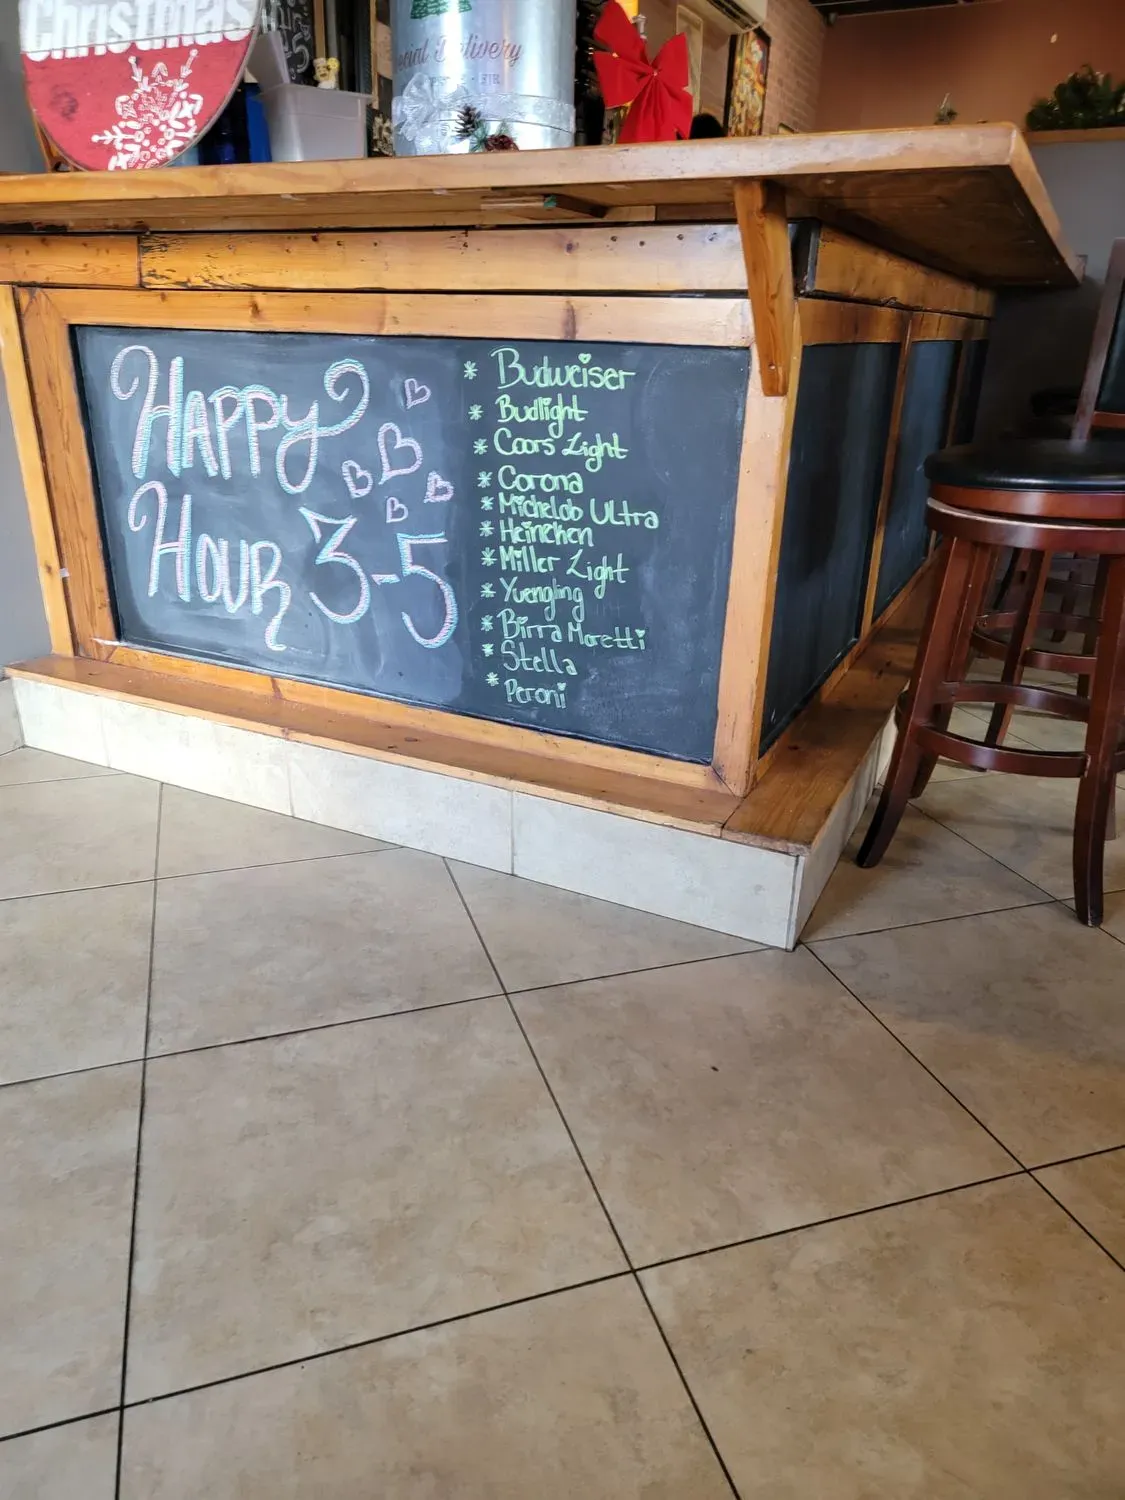 Christmas
Special Delivery
HAPPY
HOUR 3-5
* Budweiser
* Budlight
* Coors Light
* Corona
* Michelob ULtra
* Heinehen
* Miller Light
* Yuengling
* Birra Moretti
* Stella
* Peroni